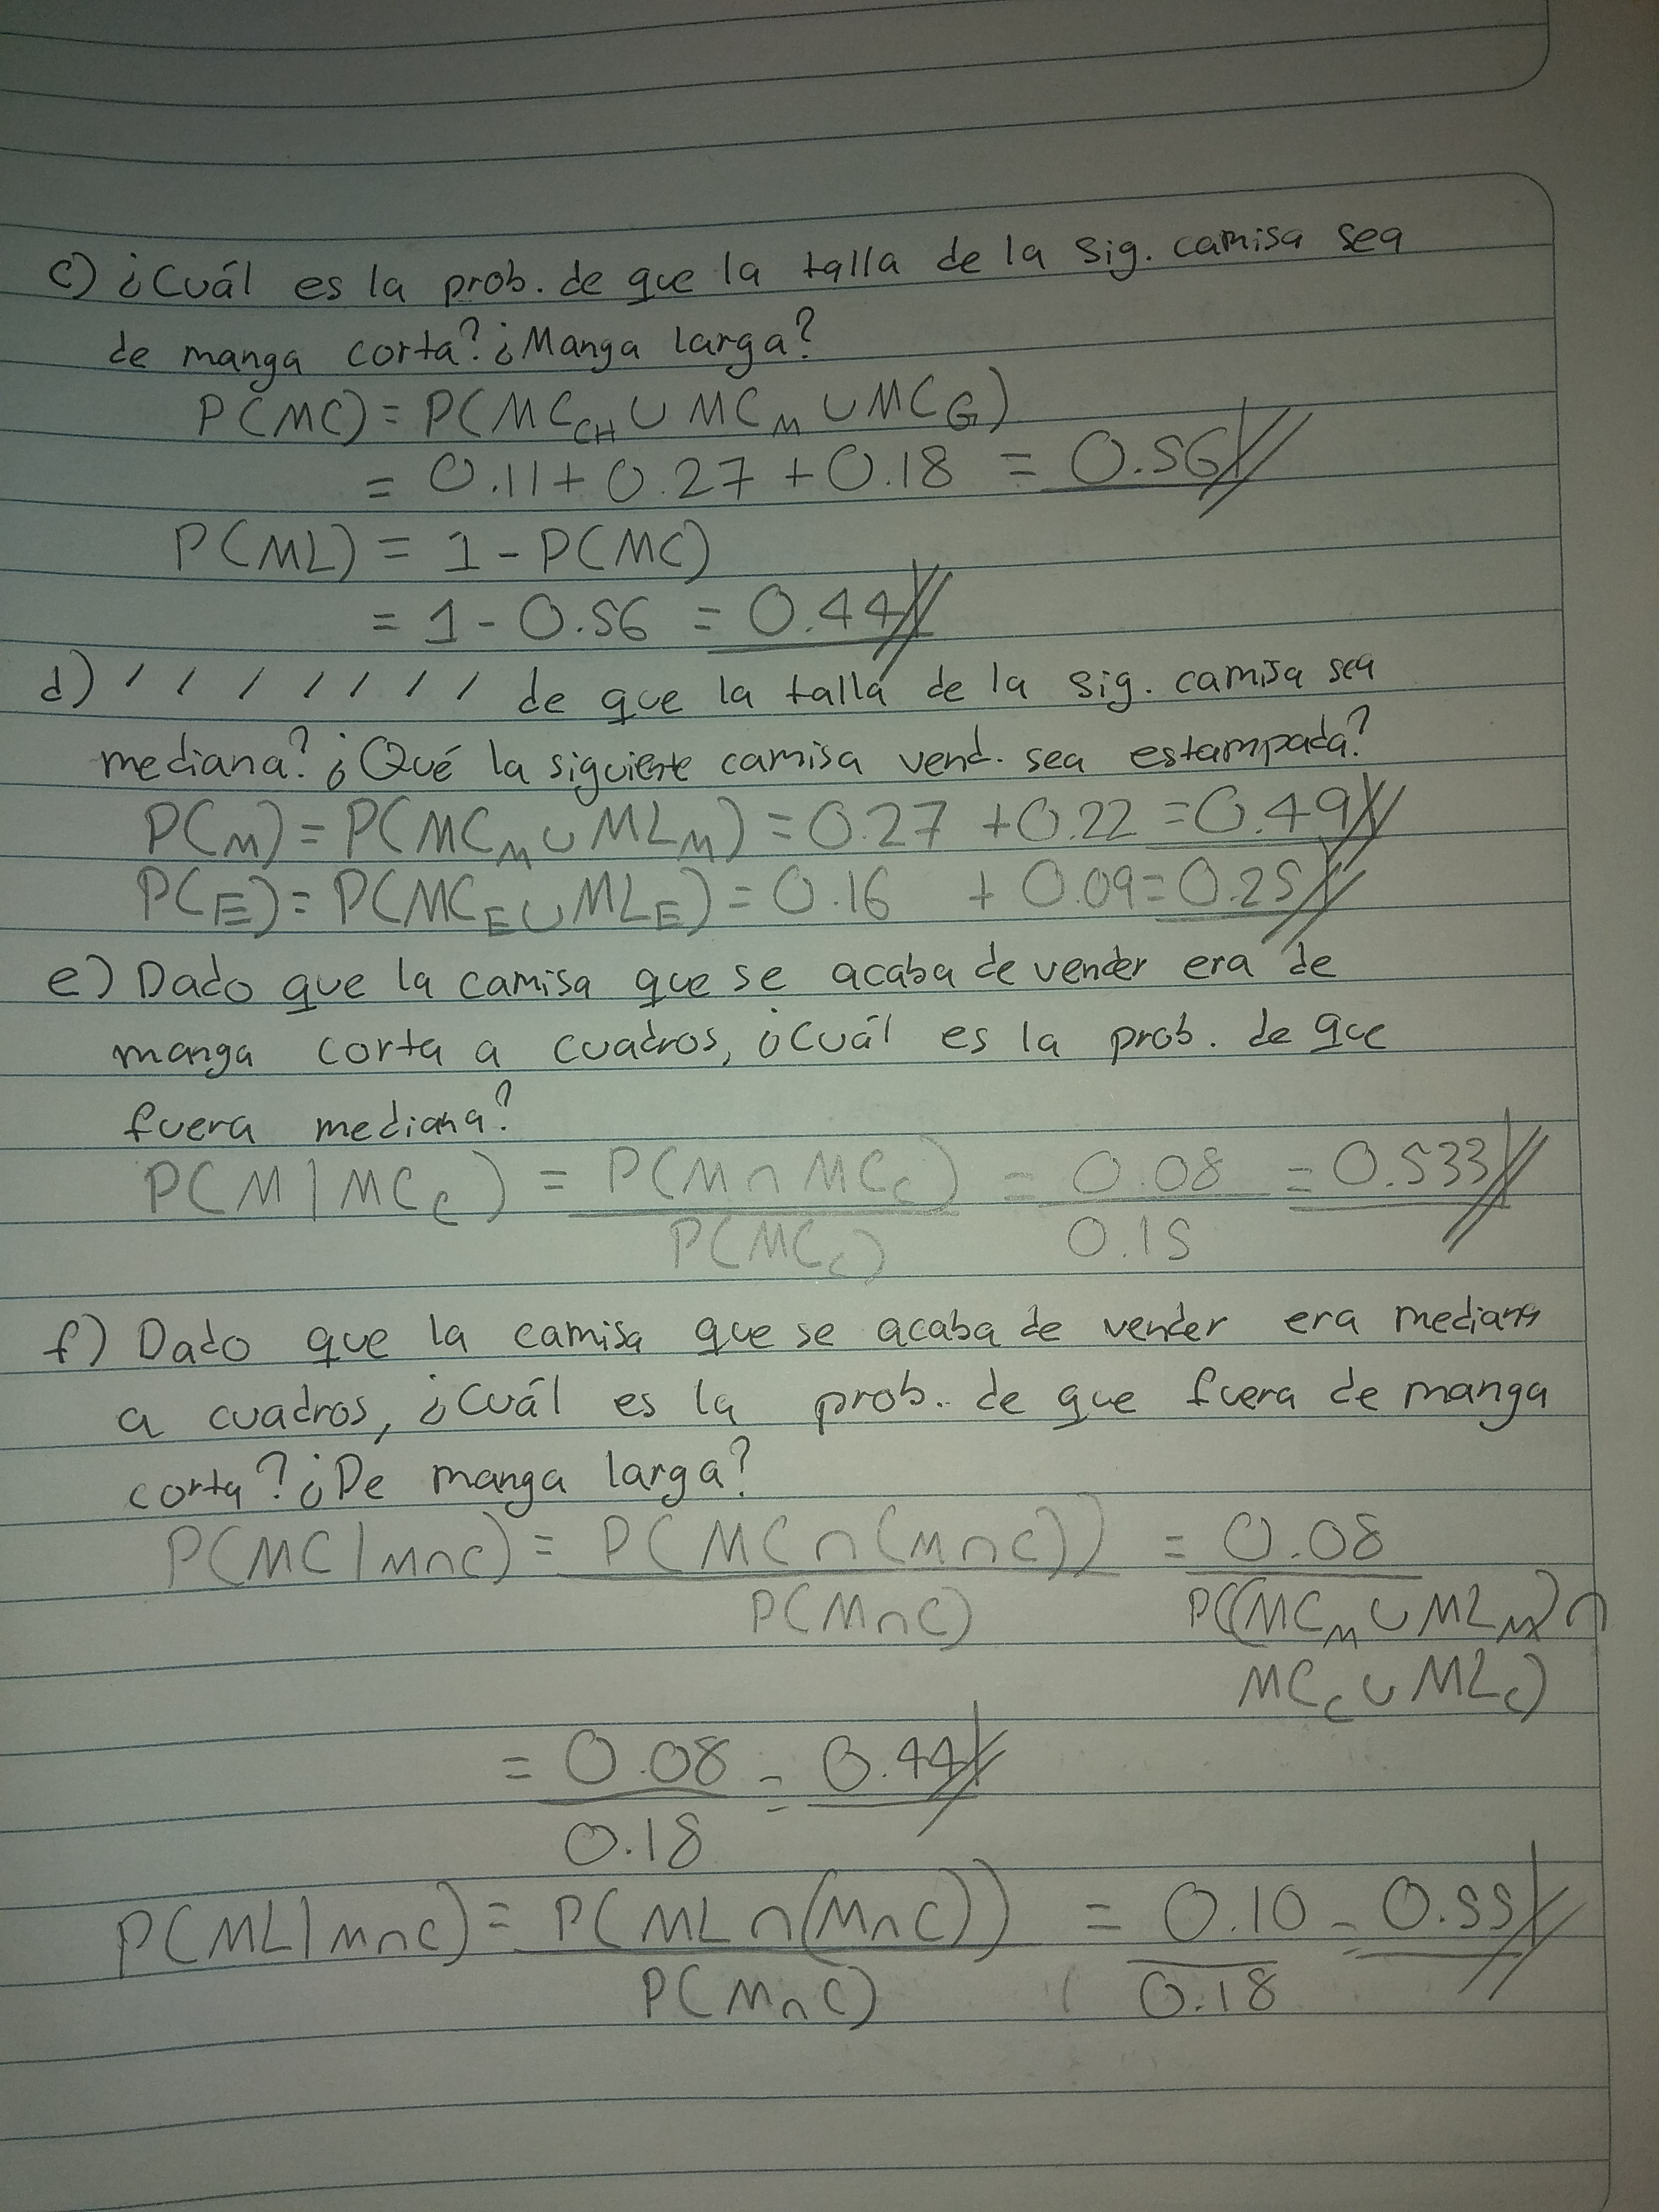 c) ¿Cuál es la prob. de que la talla de la sig. camisa sea
de manga corta? ¿Manga larga?
P(MC) = P(MC_CH ∪ MC_M ∪ MC_G)
= 0.11 + 0.27 + 0.18 = 0.56//
P(ML) = 1 - P(MC)
= 1 - 0.56 = 0.44//
d) / / / / / / / / de que la talla de la sig. camisa sea
mediana? ¿Qué la siguiente camisa vend. sea estampada?
P(M) = P(MC_M ∪ ML_M) = 0.27 + 0.22 = 0.49//
P(E) = P(MC_E ∪ ML_E) = 0.16 + 0.09 = 0.25//
e) Dado que la camisa que se acaba de vender era de
manga corta a cuadros, ¿Cuál es la prob. de que
fuera mediana?
P(M | MC_C) = P(M ∩ MC_C) = 0.08 = 0.533//
P(MC_C) 0.15
f) Dado que la camisa que se acaba de vender era mediana
a cuadros, ¿Cuál es la prob. de que fuera de manga
corta? ¿De manga larga?
P(MC | M∩C) = P(MC ∩ (M∩C)) = 0.08
P(M∩C) P((MC_M ∪ ML_M) ∩
MC_C ∪ ML_C)
= 0.08 = 0.44//
0.18
P(ML | M∩C) = P(ML ∩ (M∩C)) = 0.10 = 0.55//
P(M∩C) 0.18